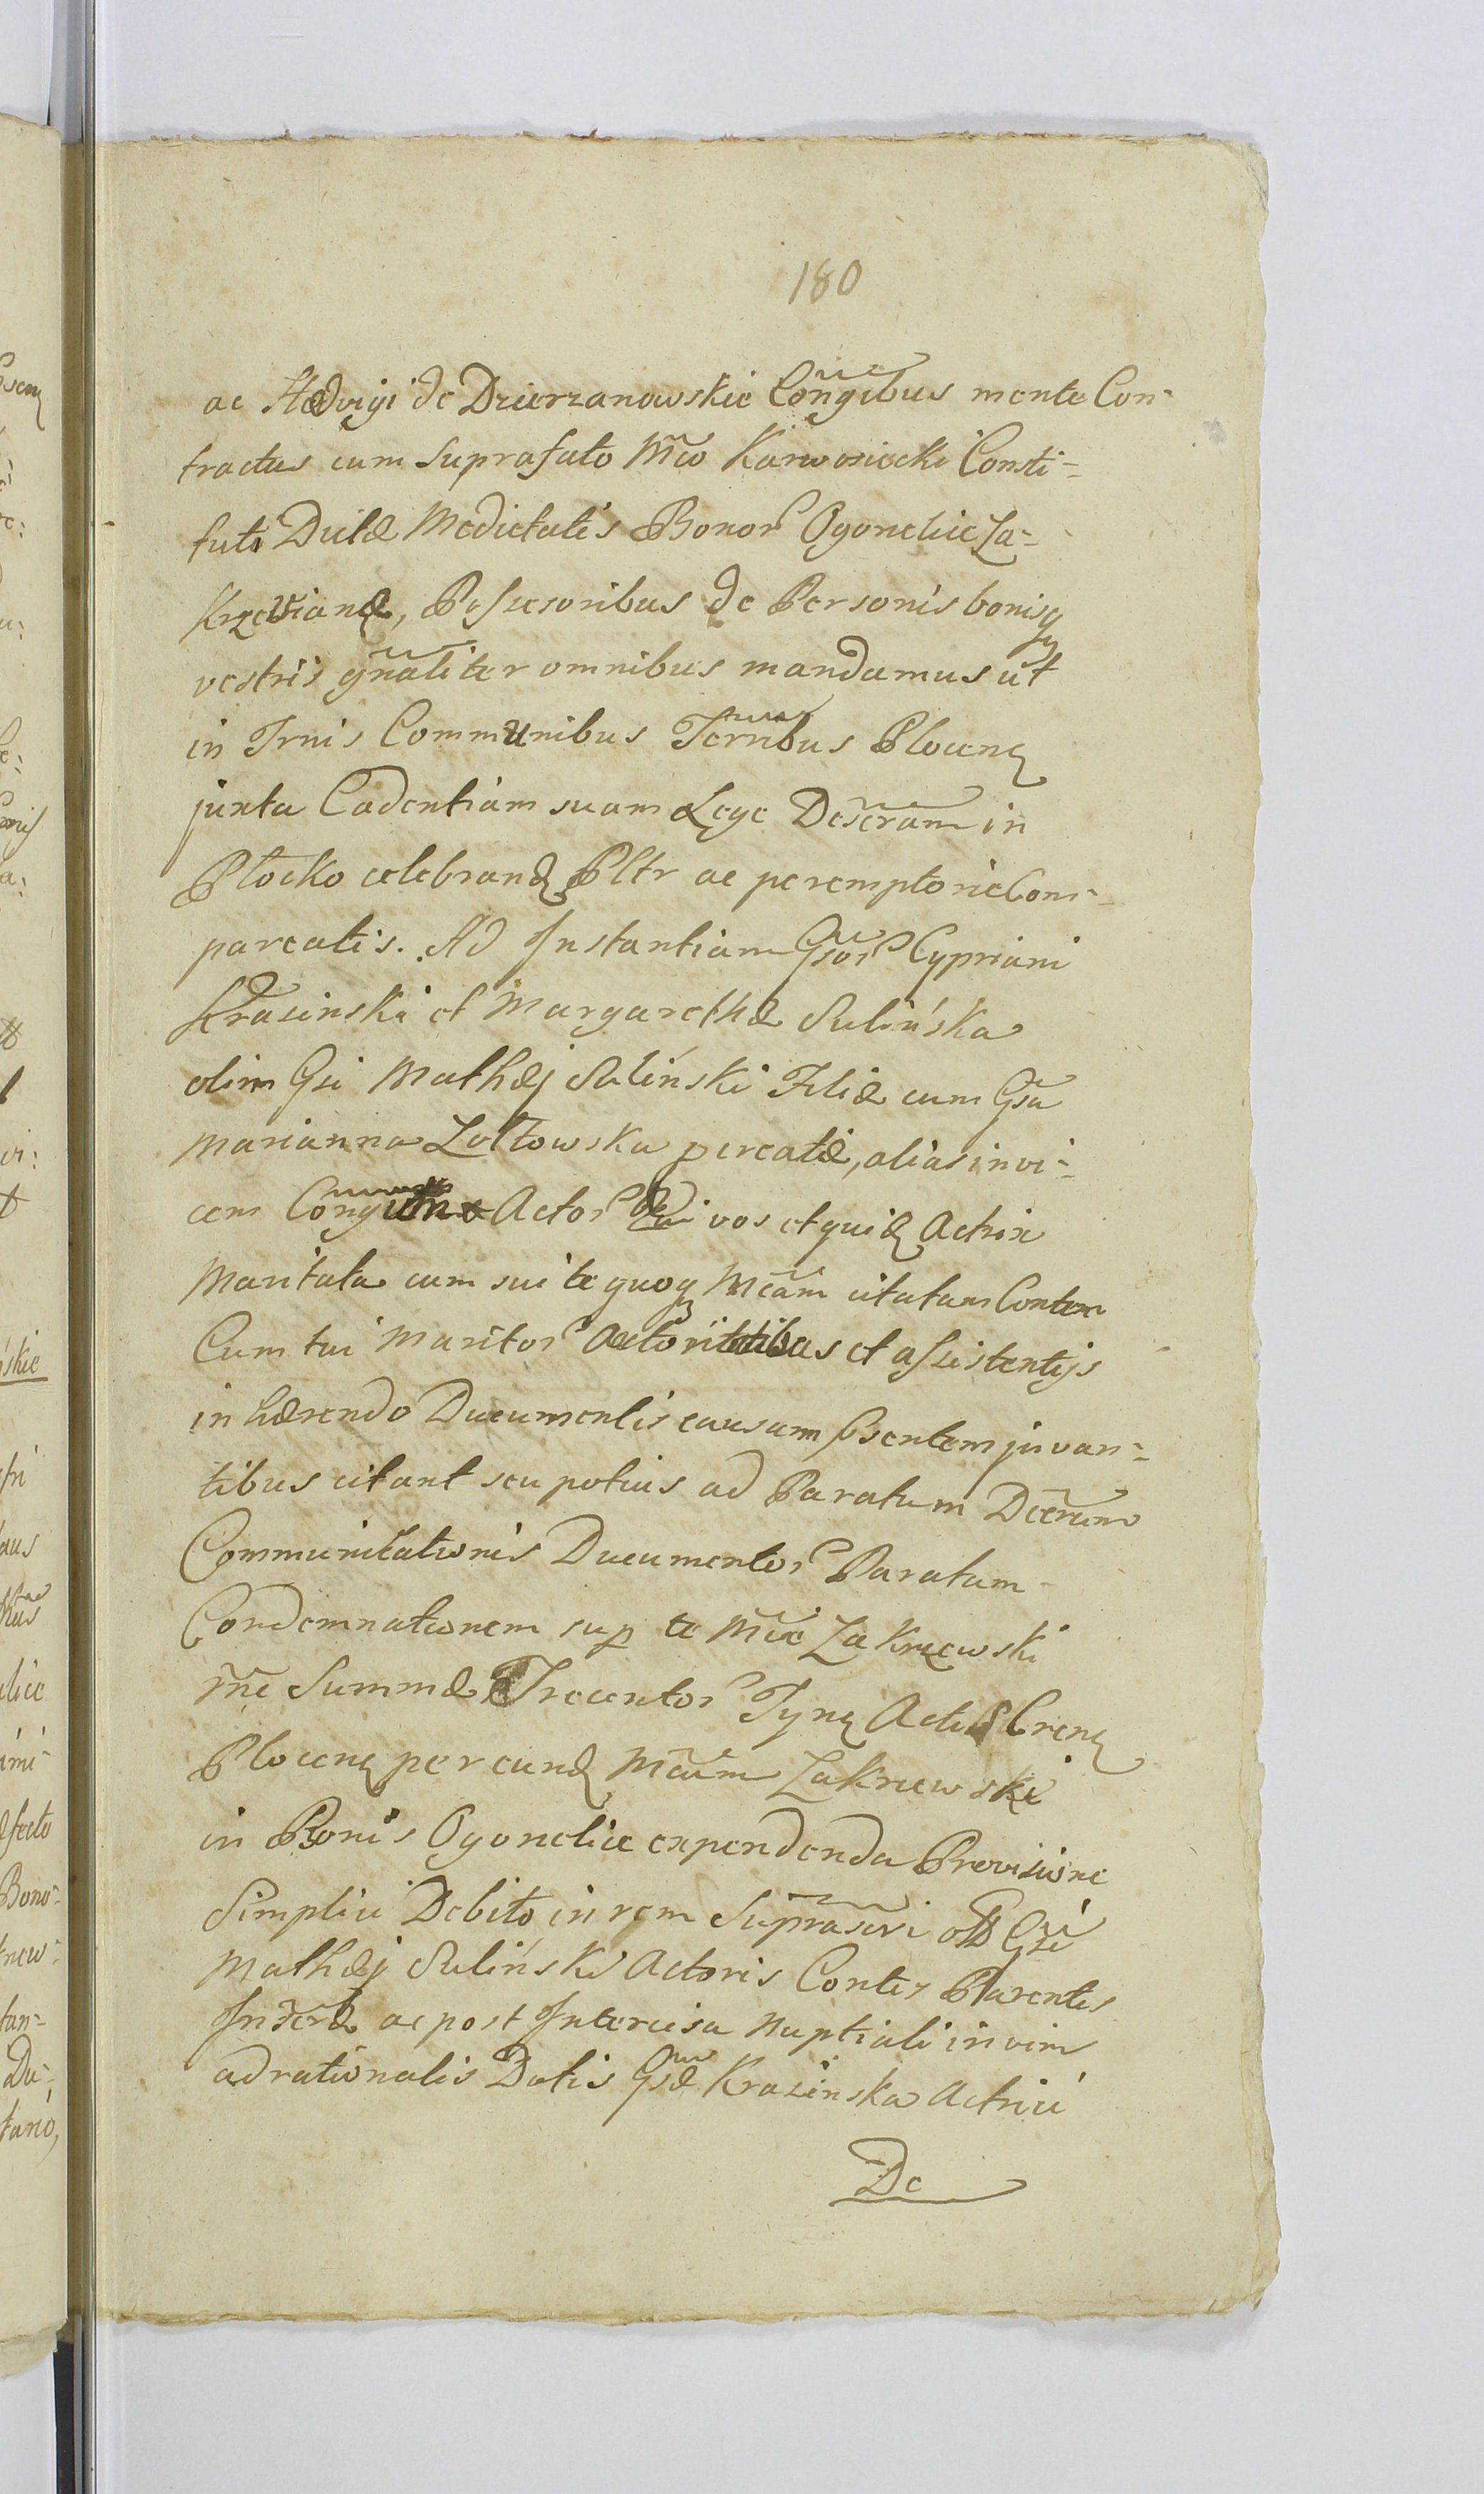 180
ac Hædvigi de Dzierzanowskie Cõngibus mente Con-
tractus cum Suprafato Mco Karwosiecki Consti-
tuti Dictæ Medietatis Bonor Ogonelice Za-
krzevianæ, Possesoribus de Personis bonisq
vestris gñaliter omnibus mandamus ut
in Trnis Communibus Terribus Plocen
juxta Cadentiam suam Lege Deseram in
Plocko celebrand Pltr ac peremptorie Com-
pareatis. Ad Instantiam Gsor Cypriani
Krasinski et Margarethæ Sulińska
olim Gsi Mathæj Suliński Filiæ cum Gsa
Marianna Zołtowska percatæ, alias invi-
cem Actor vos et quid Actrix
Maritata cum sui te quoq Mcam citatam Contem
Cum tui Maritor Actoritatibus et assistentijs
in hærendo Ducumentis causam Psentem juvan-
tibus citant seu potius ad Paratum Dcerum
Communicationis Ducumentor Paratam
Condemnationem sup te Mce Zakrzewski
rñe Summæ Trecentor Tyn Actis Cren
Plocen per eund Mcum Zakrzewski
in Bonis Ogonelice expendenda Provisione
Simplici Debito in rem Suprascri olim Gsi
Mathæj Suliński Actoris Contes Parentis
Inscræ ac post Intercisa Nuptiali in vim
adrationalis Dotis Gsæ Krasinska Actrici
De